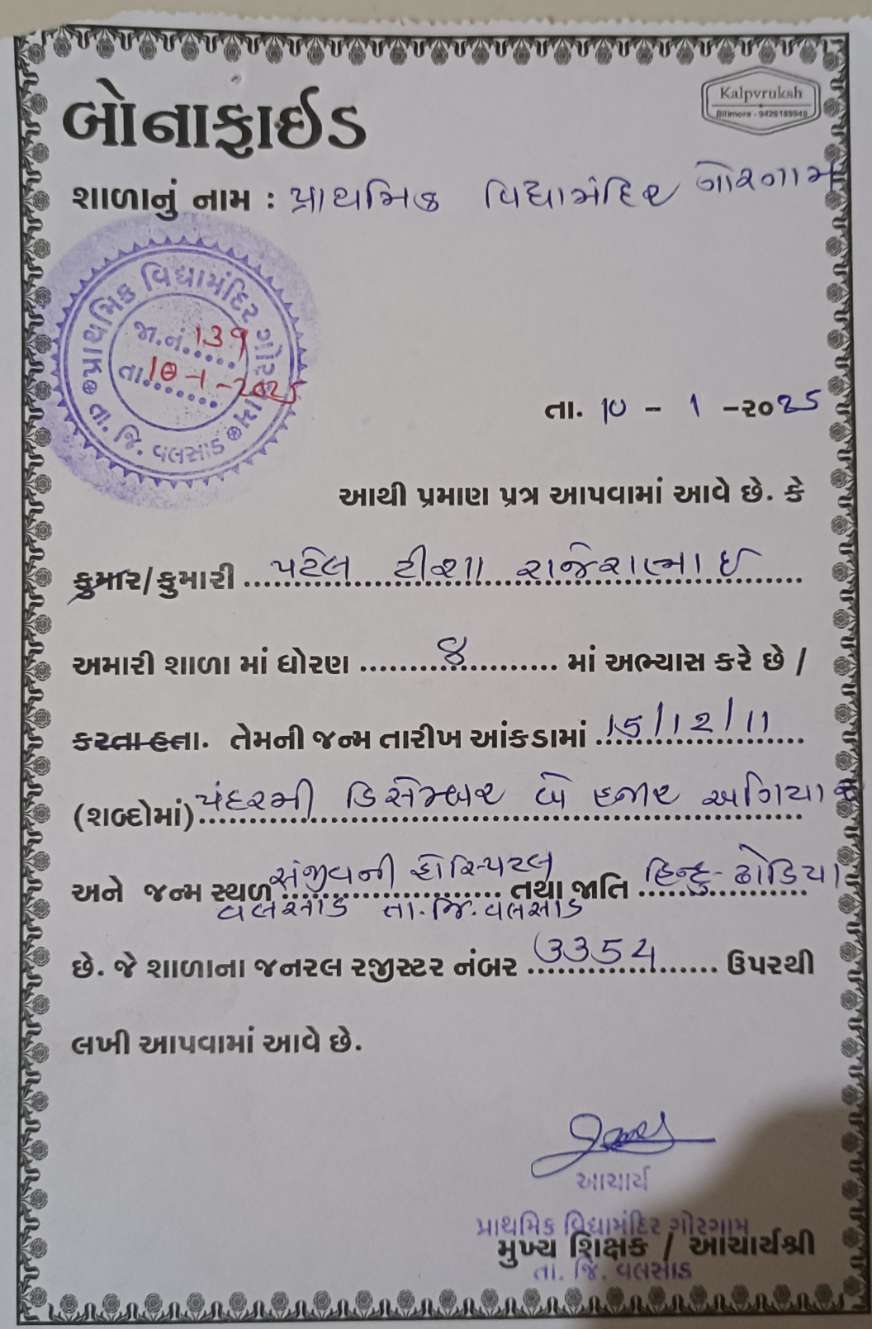 બોનાફાઈડ
Kalpvruksh
Bilimora - 9426189949
શાળાનું નામ : પ્રાથમિક વિદ્યામંદિર ગોરગામ
પ્રાથમિક વિદ્યામંદિર ગોરગામ
જા.નં. 139
તા. 10-1-2025
તા. જિ. વલસાડ
તા. ૧૦ - ૧ -૨૦25
આથી પ્રમાણ પત્ર આપવામાં આવે છે. કે
કુમાર/કુમારી પટેલ ટીશા રાજેશભાઈ
અમારી શાળા માં ધોરણ ૪ માં અભ્યાસ કરે છે /
કરતા હતા. તેમની જન્મ તારીખ આંકડામાં 15/12/11
(શબ્દોમાં) પંદરમી ડિસેમ્બર બે હજાર અગિયાર
અને જન્મ સ્થળ સંજીવની હોસ્પિટલ તથા જાતિ હિન્દુ-ઢોડિયા
વલસાડ તા.જિ.વલસાડ
છે. જે શાળાના જનરલ રજીસ્ટર નંબર 3354 ઉપરથી
લખી આપવામાં આવે છે.
આચાર્ય
પ્રાથમિક વિદ્યામંદિર ગોરગામ
મુખ્ય શિક્ષક / આચાર્યશ્રી
તા. જિ. વલસાડ